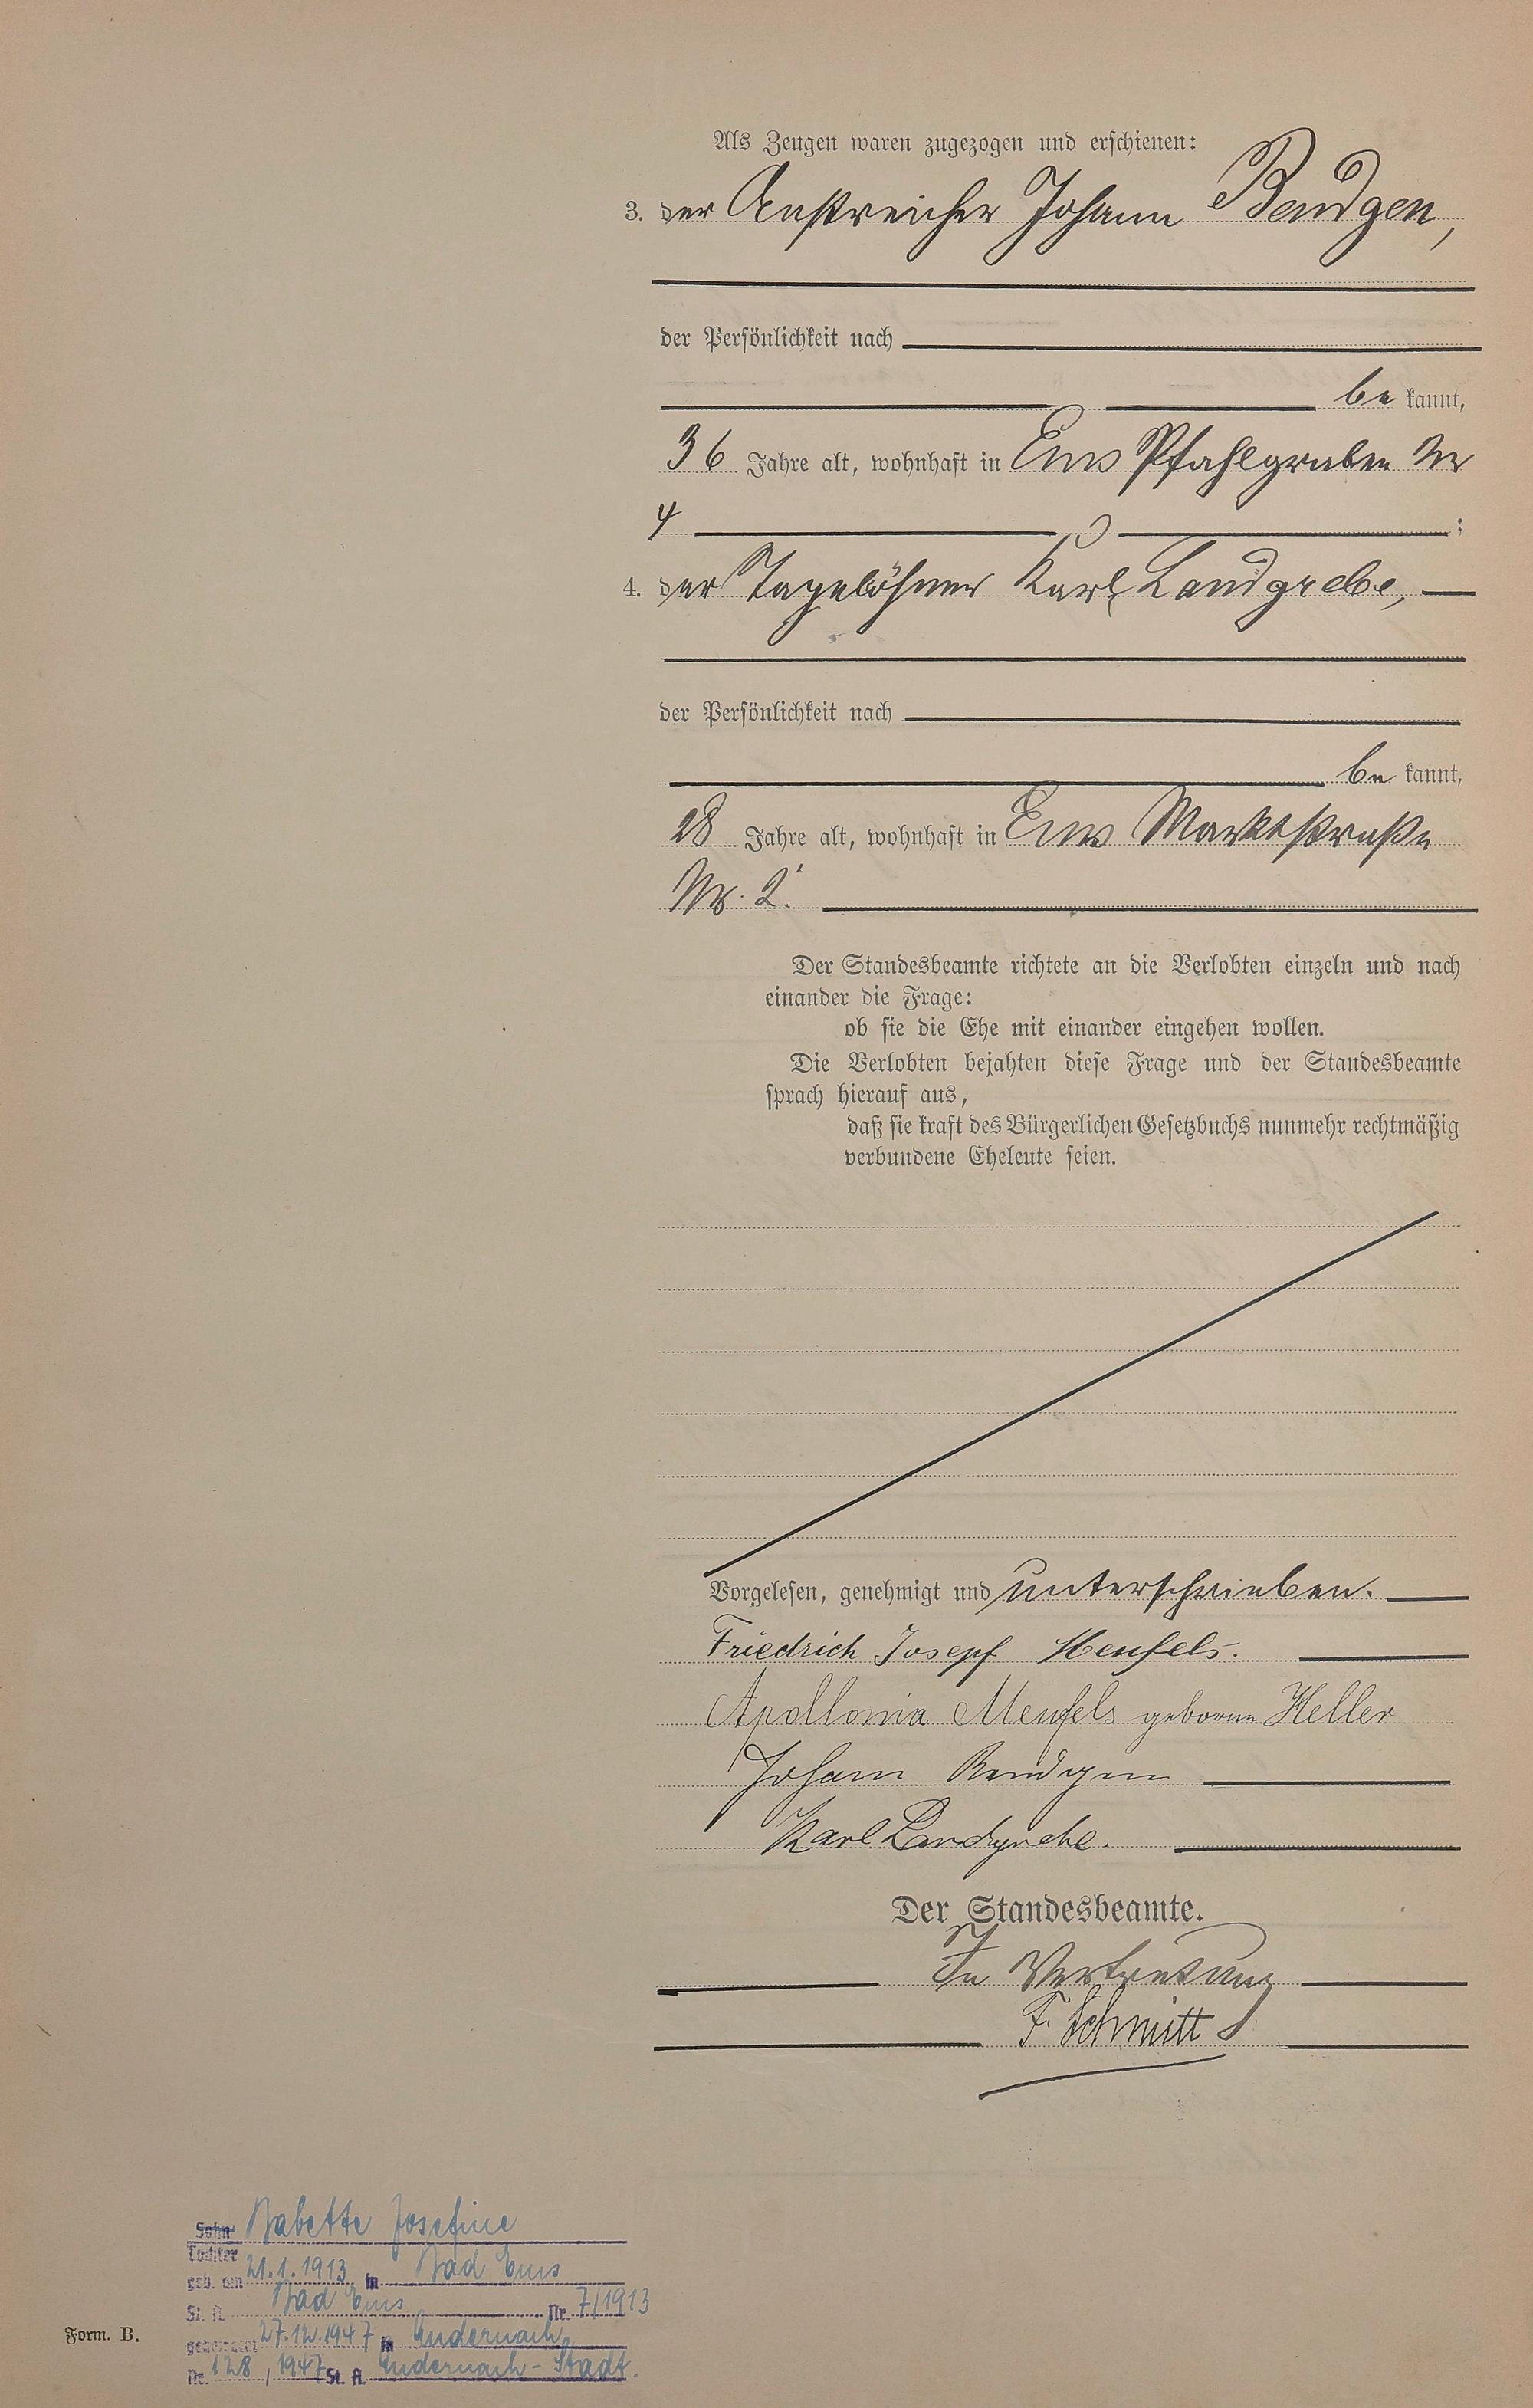 Als Zeugen waren zugezogen und erschienen:
3. der Anstreicher Johann Bendgen,
der Persönlichkeit nach
be kannt,
36 Jahre alt, wohnhaft in Ems Pfahlgraben Nr
4 ;
4. der Tagelöhner Karl Landgrebe,
der Persönlichkeit nach
be kannt,
28 Jahre alt, wohnhaft in Ems Marktstraße
Nr. 2.
Der Standesbeamte richtete an die Verlobten einzeln und nach
einander die Frage:
ob sie die Ehe mit einander eingehen wollen.
Die Verlobten bejahten diese Frage und der Standesbeamte
sprach hierauf aus,
daß sie kraft des Bürgerlichen Gesetzbuchs nunmehr rechtmäßig
verbundene Eheleute seien.
Vorgelesen, genehmigt und unterschrieben.
Friedrich Josepf Meufels.
Apollonia Meufels geborne Heller
Johann Bendgen
Karl Landgrebe.
Der Standesbeamte.
In Vertretung
F. Schmitt
Sohn Babette Josefine
Tochter
geb. am 21.1.1913 in Bad Ems
St. A. Bad Ems Nr. 7/1913
geheiratet 27.12.1947 in Andernach
Nr. 128, 1947 St. A. Andernach-Stadt.
Form. B.